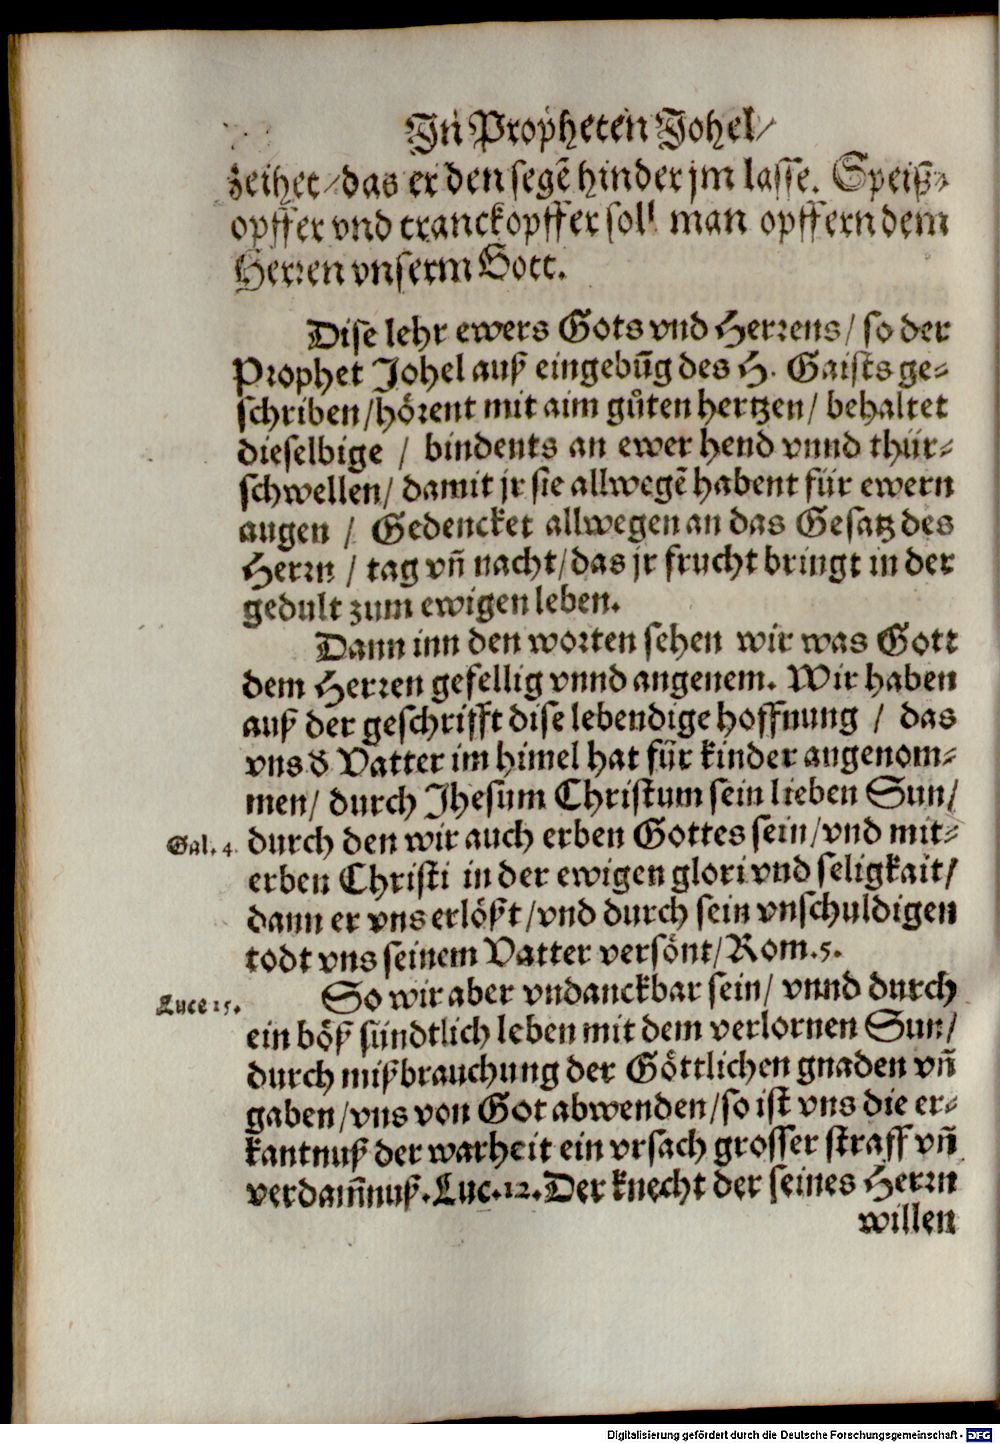 In Propheten Johel/
zeihet/das er den segẽ hinder jm lasse. Speiß-
opffer vnd tranckopffer soll man opffern dem
Herren vnserm Gott.
Dise lehr ewers Gots vnd Herrens/ so der
Prophet Johel auß eingebũg des H. Gaists ge-
schriben/hörent mit aim gůten hertzen/ behaltet
dieselbige / bindents an ewer hend vnnd thür-
schwellen/ damit jr sie allwegẽ habent für ewern
augen / Gedencket allwegen an das Gesatz des
Herrn / tag vñ nacht/das jr frucht bringt in der
gedult zum ewigen leben.
Dann inn den worten sehen wir was Gott
dem Herren gefellig vnnd angenem. Wir haben
auß der geschrifft dise lebendige hoffnung / das
vns d Vatter im himel hat für kinder angenom-
men/ durch Jhesum Christum sein lieben Sun/
Gal. 4. durch den wir auch erben Gottes sein/vnd mit-
erben Christi in der ewigen glori vnd seligkait/
dann er vns erlößt/vnd durch sein vnschuldigen
todt vns seinem Vatter versönt/Rom.5.
Luce 15. So wir aber vndanckbar sein/ vnnd durch
ein böß sündtlich leben mit dem verlornen Sun/
durch mißbrauchung der Göttlichen gnaden vñ
gaben/vns von Got abwenden/so ist vns die er-
kantnuß der warheit ein vrsach grosser straff vñ
verdam̃nuß.Luc.12.Der knecht der seines Herrn
willen
Digitalisierung gefördert durch die Deutsche Forschungsgemeinschaft - DFG